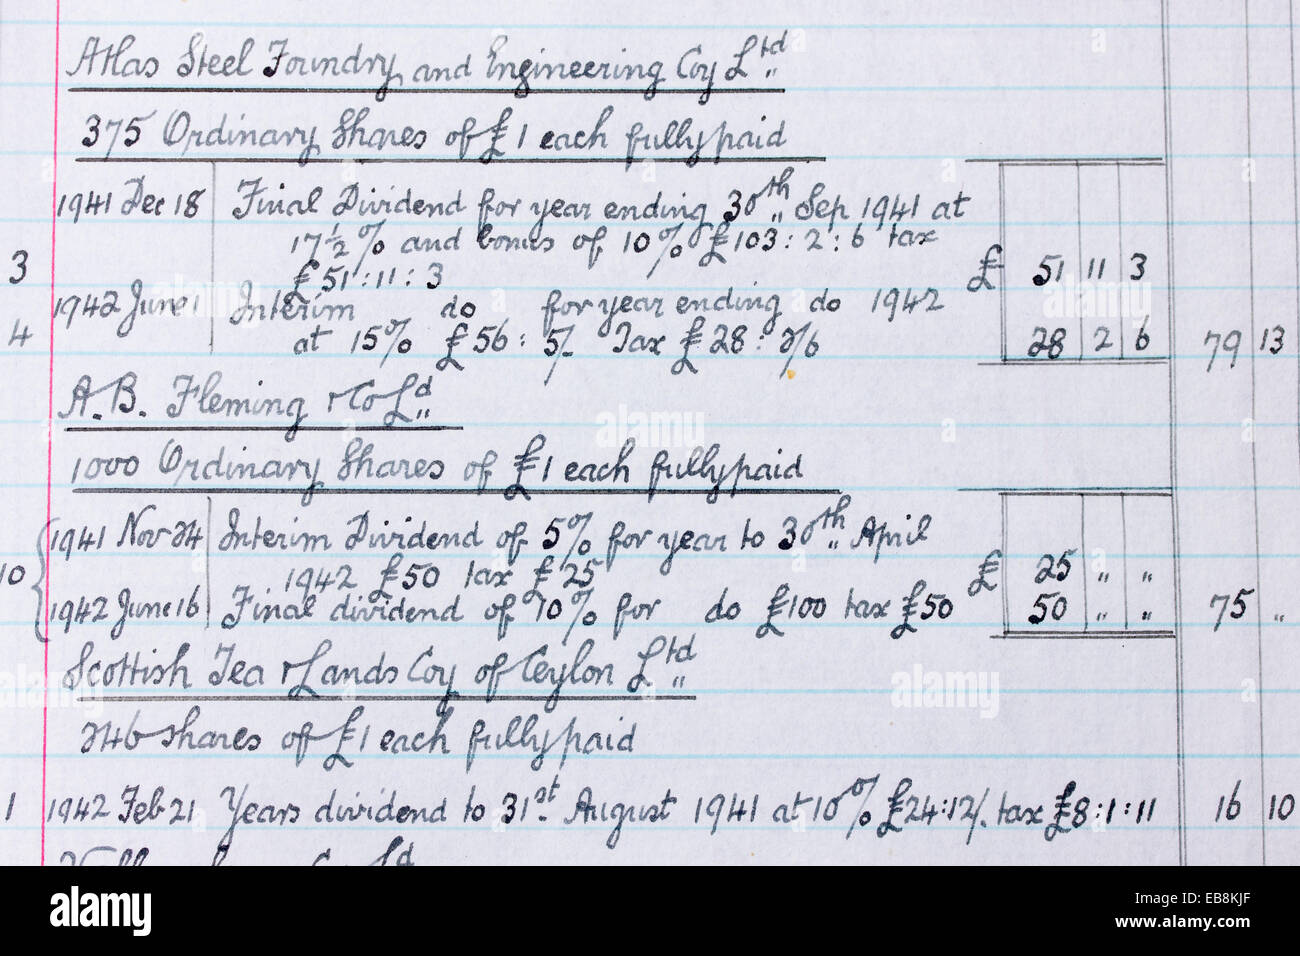 Atlas Steel Foundry and Engineering Coy Ltd
375 Ordinary Shares of £1 each fully paid
1941 Dec 18 Final Dividend for year ending 30th Sep 1941 at
17½% and bonus of 10% £103:2:6 tax
3 £51:11:3 £ 51 11 3
1942 June 1 Interim do for year ending do 1942
4 at 15% £56:5/- Tax £28:2/6 28 2 6 79 13
A.B. Fleming & Co Ld
1000 Ordinary Shares of £1 each fully paid
1941 Nov 24 Interim Dividend of 5% for year to 30th April
10 1942 £50 tax £25 £ 25 " "
1942 June 16 Final dividend of 10% for do £100 tax £50 50 " " 75 "
Scottish Tea & Lands Coy of Ceylon Ltd
246 shares of £1 each fully paid
1 1942 Feb 21 Years dividend to 31st August 1941 at 10% £24:12/- tax £8:1:11 16 10
alamy
alamy
alamy
alamy
alamy
alamy
Image ID: EB8KJF
www.alamy.com